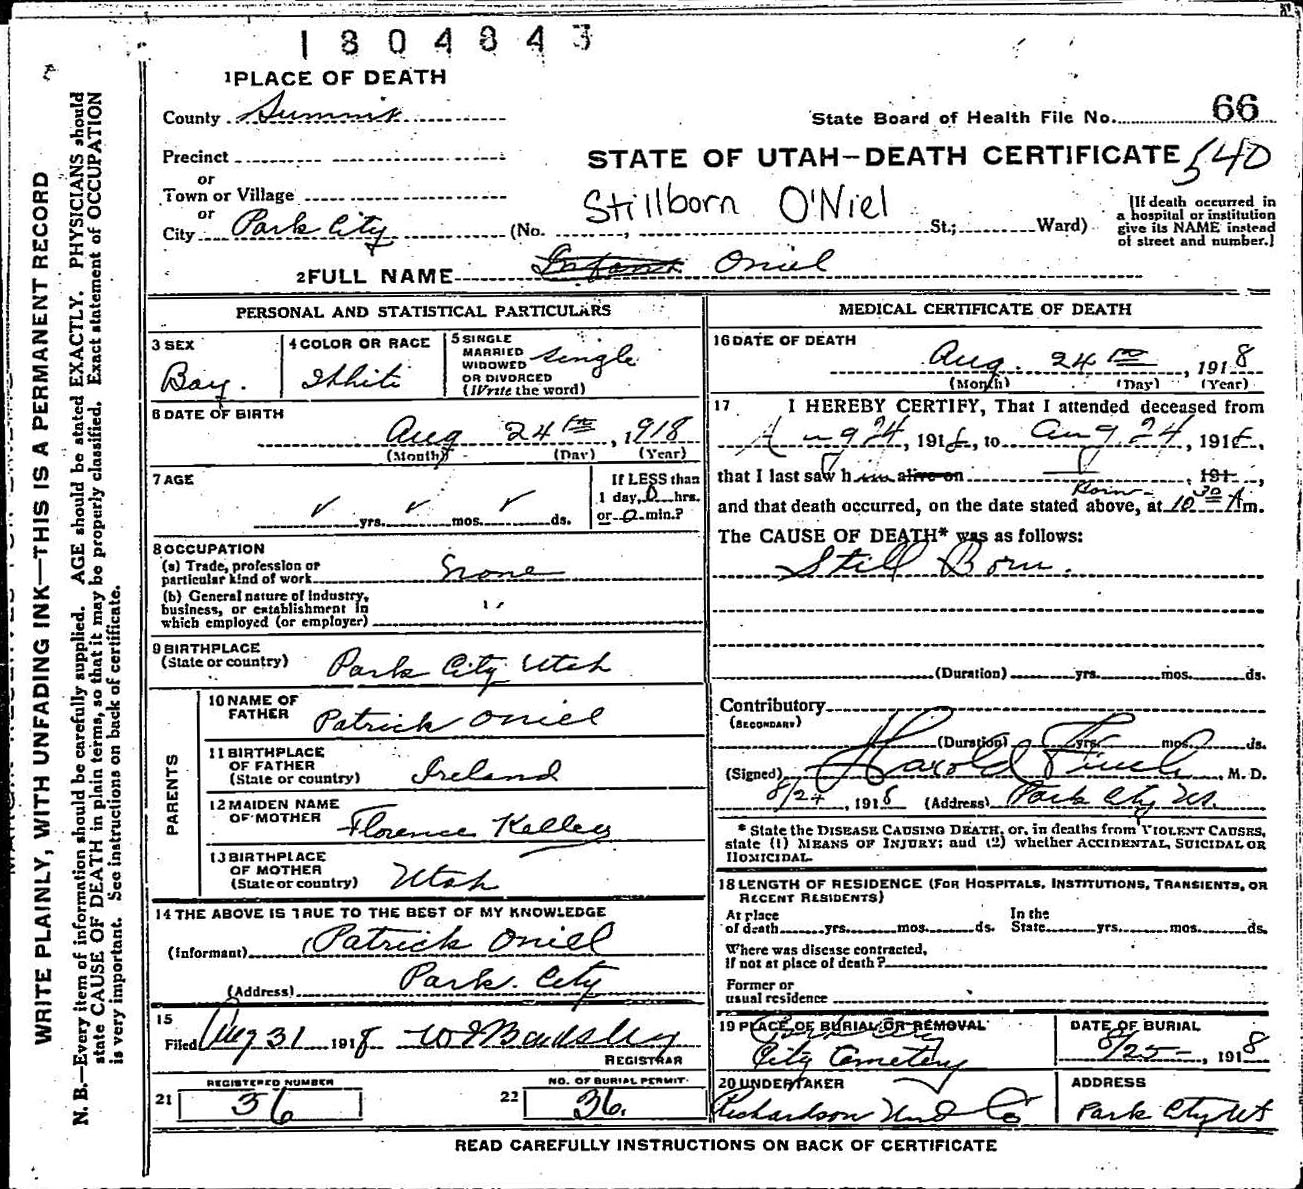 1804843
1PLACE OF DEATH
County Summit
State Board of Health File No. 66
Precinct
STATE OF UTAH—DEATH CERTIFICATE 540
or
Town or Village
or
City Park City (No. , St.; Ward)
Stillborn O'Niel
[If death occurred in
a hospital or institution
give its NAME instead
of street and number.]
2FULL NAME Infant Oniel
PERSONAL AND STATISTICAL PARTICULARS
3 SEX
Boy.
4 COLOR OR RACE
White
5 SINGLE
MARRIED
WIDOWED
OR DIVORCED
(Write the word)
Single
6 DATE OF BIRTH
Aug 24th, 1918
(Month) (Day) (Year)
7 AGE
✓ yrs. ✓ mos. ✓ ds.
If LESS than
1 day, 0 hrs.
or 0 min.?
8 OCCUPATION
(a) Trade, profession or
particular kind of work None
(b) General nature of Industry,
business, or establishment in
which employed (or employer)
9 BIRTHPLACE
(State or country) Park City Utah
PARENTS
10 NAME OF
FATHER Patrick Oniel
11 BIRTHPLACE
OF FATHER
(State or country) Ireland
12 MAIDEN NAME
OF MOTHER Florence Kelley
13 BIRTHPLACE
OF MOTHER
(State or country) Utah
14 THE ABOVE IS TRUE TO THE BEST OF MY KNOWLEDGE
(Informant) Patrick Oniel
(Address) Park City
15
Filed Aug 31 1918
REGISTRAR
REGISTERED NUMBER
21 36
NO. OF BURIAL PERMIT
22 36.
MEDICAL CERTIFICATE OF DEATH
16 DATE OF DEATH
Aug. 24th, 1918
(Month) (Day) (Year)
17 I HEREBY CERTIFY, That I attended deceased from
Aug 24, 1918, to Aug 24, 1918,
that I last saw him alive on , 191 ,
Born
and that death occurred, on the date stated above, at 10 30 A m.
The CAUSE OF DEATH* was as follows:
Still Born.
(Duration) yrs. mos. ds.
Contributory
(SECONDARY)
(Duration) yrs. mos. ds.
(Signed) Harold Finch, M. D.
8/24, 1918 (Address) Park City Ut.
* State the DISEASE CAUSING DEATH, or, in deaths from VIOLENT CAUSES,
state (1) MEANS OF INJURY; and (2) whether ACCIDENTAL, SUICIDAL OR
HOMICIDAL.
18 LENGTH OF RESIDENCE (FOR HOSPITALS, INSTITUTIONS, TRANSIENTS, OR
RECENT RESIDENTS)
At place
of death yrs. mos. ds. In the
State yrs. mos. ds.
Where was disease contracted,
If not at place of death?
Former or
usual residence
19 PLACE OF BURIAL OR REMOVAL
City Cemetery
DATE OF BURIAL
8/25, 1918
20 UNDERTAKER
Richardson Und Co
ADDRESS
Park City Ut
READ CAREFULLY INSTRUCTIONS ON BACK OF CERTIFICATE
WRITE PLAINLY, WITH UNFADING INK—THIS IS A PERMANENT RECORD
N. B.—Every item of information should be carefully supplied. AGE should be stated EXACTLY. PHYSICIANS should
state CAUSE OF DEATH in plain terms, so that it may be properly classified. Exact statement of OCCUPATION
is very important. See instructions on back of certificate.